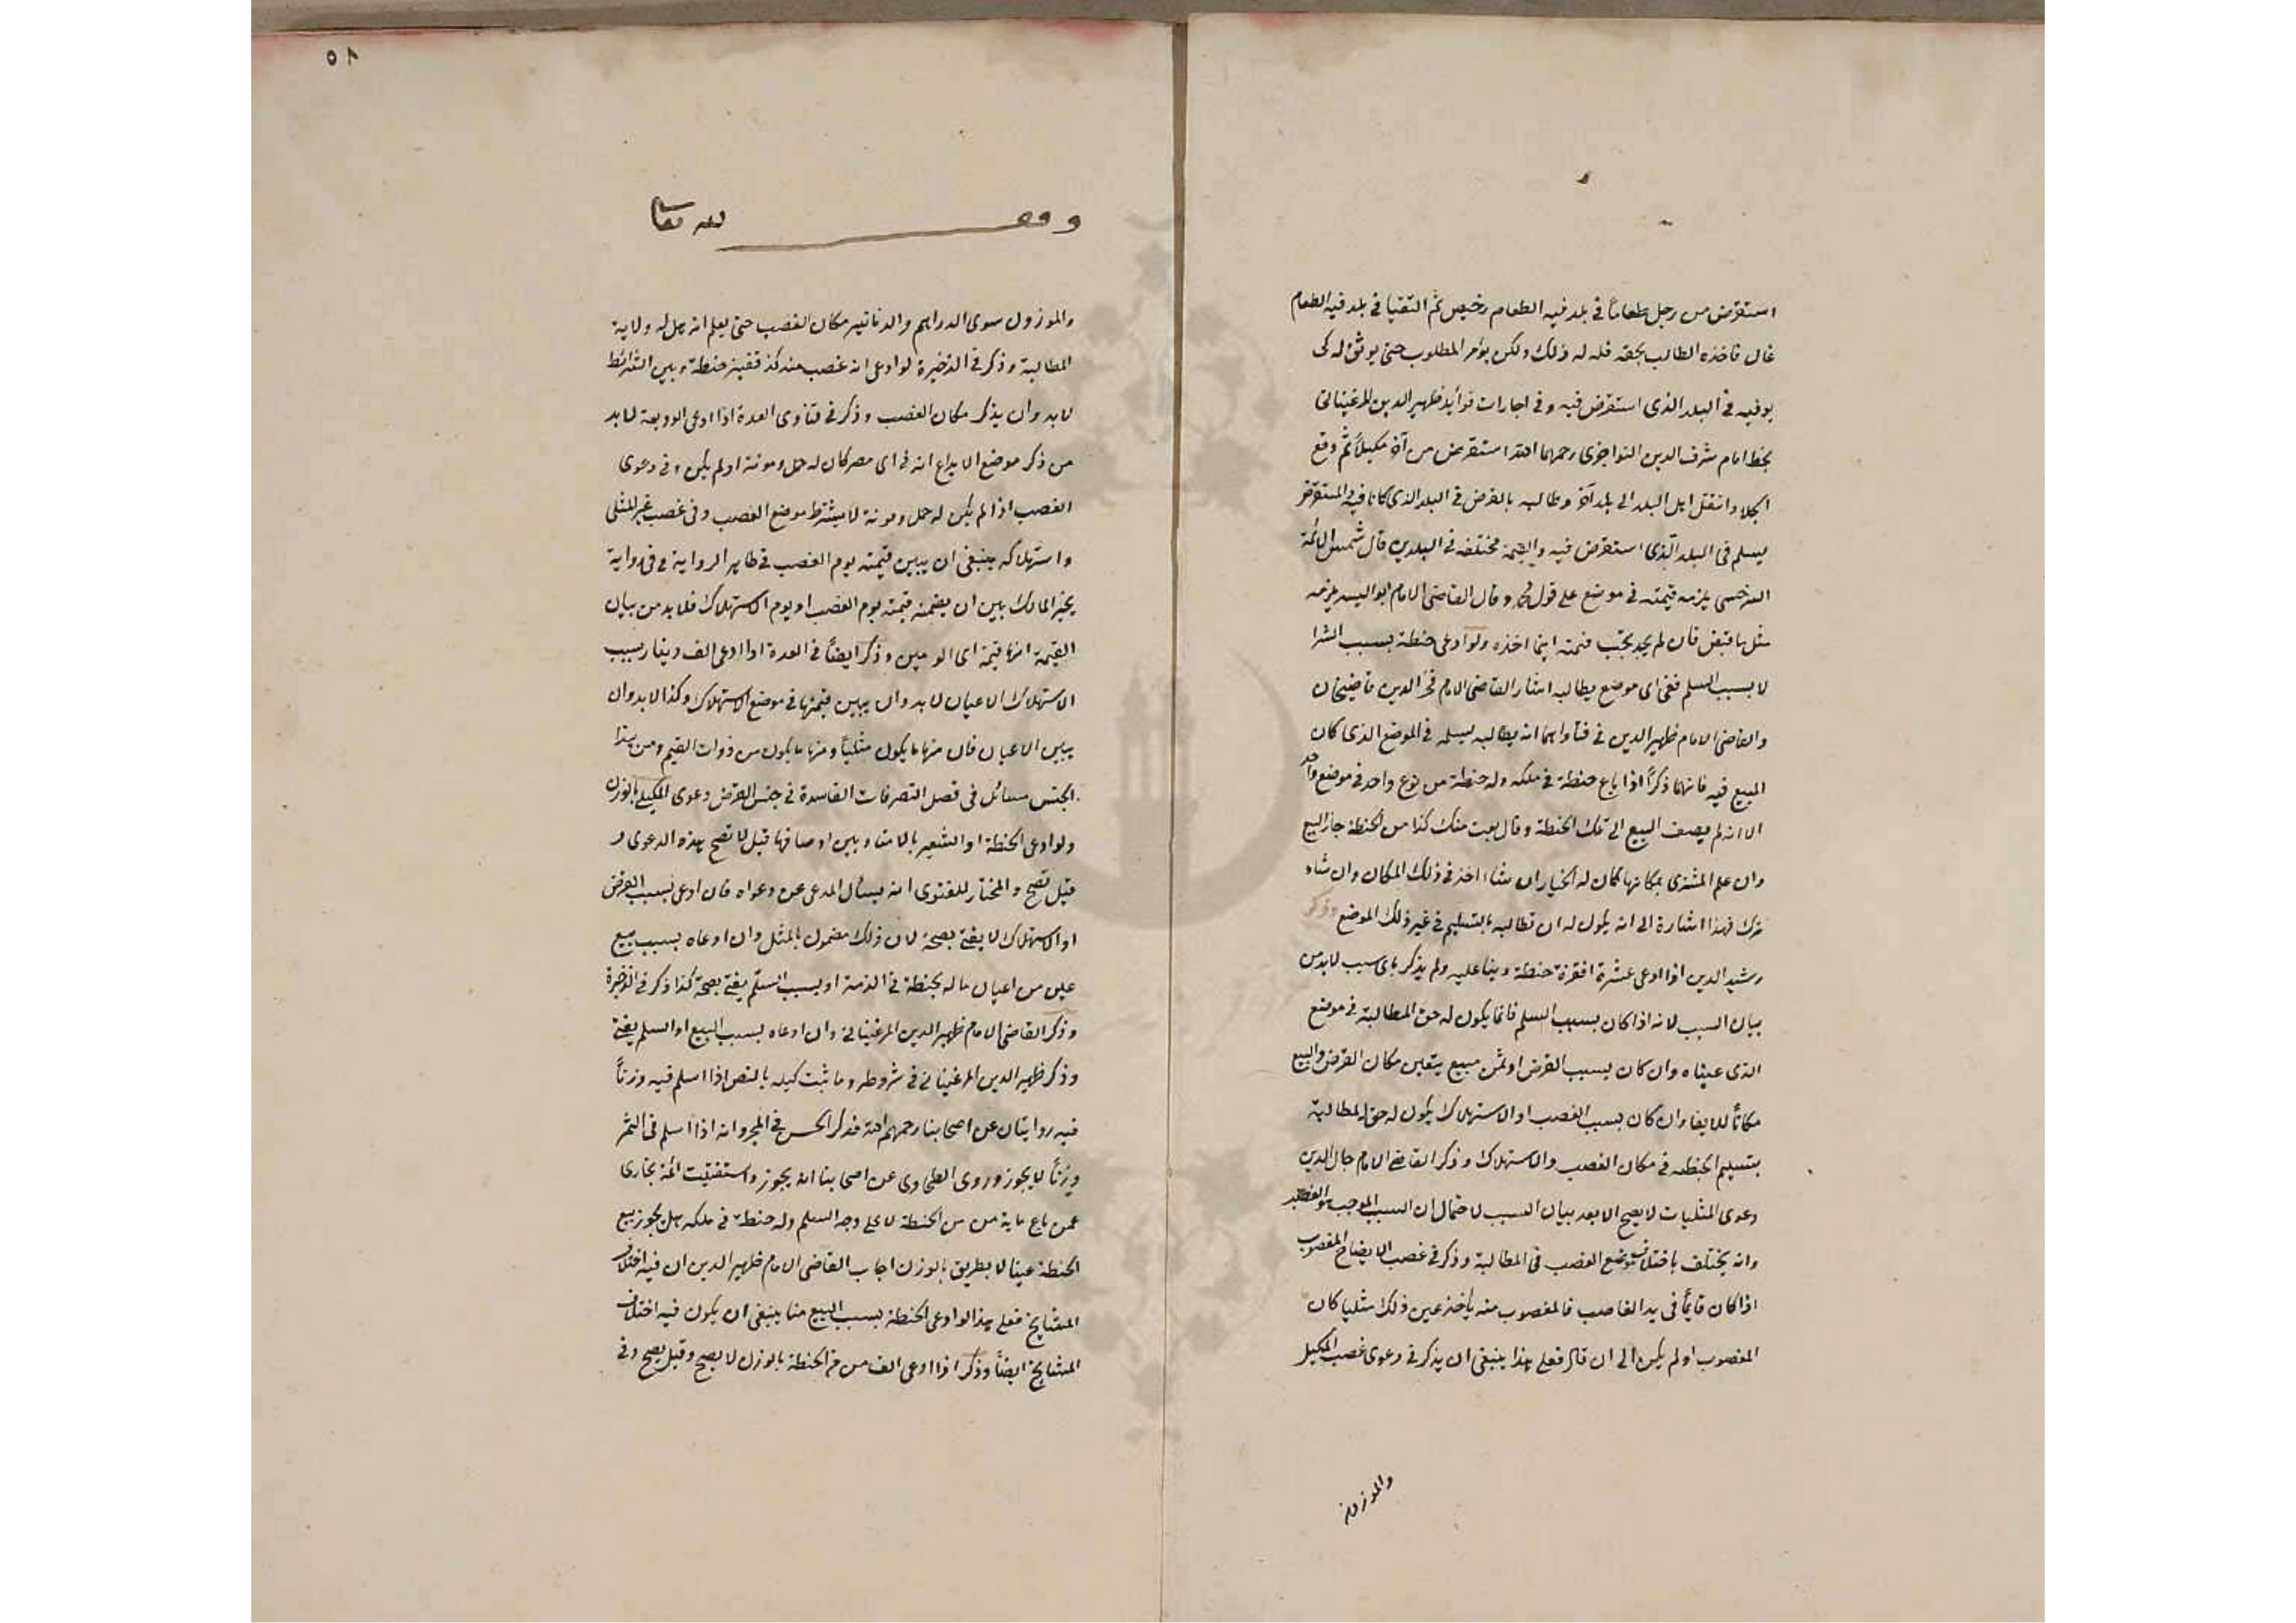 استقرض من رجل طعاماً في بلد فيه الطعام رخيص ثم التقيا في بلد فيه الطعام
غال فاخذه الطالب بحقه فله له ذلك ولكن يؤمر المطلوب حتى يوثق له كى
يوفيه في البلد الذى استقرض فيه وفي اجارات فوائد ظهير الدين المرغينانى
بخط امام شرف الدين النواجوى رحمهما الله استقرض من آخر مكيلاً ثم وقع
الجلاء وانتقل اهل البلد الى بلد آخر وطالبه بالقرض في البلد الذى كانا فيه المستقرض
يسلم فى البلد الذى استقرض فيه والقيمة مختلفه في البلدين قال شمس الائمة
السرخسى يلزمه قيمته في موضع على قول محمد وقال القاضى الامام ابو اليسر يلزمه
مثل ما قبض فان لم يجد يجب قيمته اينما اخذه ولو ادعى حنطة بسبب الشرا
لا بسبب السلم ففى اى موضع يطالبه اشار القاضى الامام فخر الدين قاضيخان
والقاضى الامام ظهير الدين في فتاواهما انه يطالبه يسلمه في الموضع الذى كان
المبيع فيه فانهما ذكرا اذا باع حنطة في ملكه وله حنطة من نوع واحد في موضع واحد
الا انه لم يصف البيع الى تلك الحنطة وقال بعت منك كذا من الحنطة جاز البيع
وان علم المشترى بمكانها كان له الخيار ان شاء اخذ في ذلك المكان وان شاء
ترك فهذا اشارة الى انه يكون له ان تطالبه بالتسليم في غير ذلك الموضع وذكر
رشيد الدين اذا ادعى عشرة اقفزة حنطة دينا عليه ولم يذكر باى سبب لابد من
بيان السبب لانه اذا كان بسبب السلم فانما يكون له حق المطالبة في موضع
الذى عيناه وان كان بسبب القرض او ثمن مبيع يتعين مكان القرض والبيع
مكاناً للايفاء وان كان بسبب الغصب او الاستهلاك يكون له حق المطالبة
بتسليم الحنطه في مكان الغصب والاستهلاك وذكر القاضى الامام جمال الدين
دعوى المثليات لا يصح الا بعد بيان السبب لاحتمال ان السبب الموجب هو الغصب
وانه يختلف باختلاف موضع الغصب فى المطالبة وذكر في غصب الايضاح المغصوب
اذا كان قايماً فى يد الغاصب فالمغصوب منه ياخذ عين ذلك مثليا كان
المغصوب اولم يكن الى ان قال فعلى هذا ينبغى ان يذكر في دعوى غصب المكيل
والموزون
٥٨
وقف لله تعالى
والموزون سوى الدراهم والدنانير مكان الغصب حتى يعلم انه هل له ولاية
المطالبة وذكر في الذخيرة لو ادعى انه غصب منه كذا قفيز حنطة وبين الشرائط
لابد وان يذكر مكان الغصب وذكر في فتاوى العدة اذا ادعى الوديعة لابد
من ذكر موضع الايداع انه في اى مصر كان له حمل ومونة اولم يكن وفى دعوى
الغصب اذا لم يكن له حمل ومونة لا يشترط موضع الغصب وفى غصب غير المثلى
واستهلاكه ينبغى ان يبين قيمته يوم الغصب في ظاهر الرواية وفى رواية
يخير المالك بين ان يضمنه قيمته يوم الغصب او يوم الاستهلاك فلابد من بيان
القيمة انها قيمة اى اليومين وذكر ايضاً في العدة اذا ادعى الف دينار بسبب
الاستهلاك الاعيان لابد وان يبين قيمتها في موضع الاستهلاك وكذا لابد وان
يبين الاعيان فان منها ما يكون مثلياً ومنها ما يكون من ذوات القيم ومن هذا
الجنس مسائل فى فصل التصرفات الفاسدة في جنس القرض دعوى المكيل بالوزن
ولو ادعى الحنطة او الشعير بالامناء وبين اوصافها قيل لا تصح هذه الدعوى و
قيل تصح والمختار للفتوى انه يسأل المدعى عن دعواه فان ادعى بسبب القرض
او الاستهلاك لا يفتى بصحة لان ذلك مضمون بالمثل وان ادعاه بسبب بيع
عين من اعيان ماله بحنطة في الذمة او بسبب السلم يفتى بصحة كذا ذكر في الذخيرة
وذكر القاضى الامام ظهير الدين المرغينانى وان ادعاه بسبب البيع او السلم يفتى
وذكر ظهير الدين المرغينانى في شروطه وما ثبت كيله بالنص اذا اسلم فيه وزناً
فيه روايتان عن اصحابنا رحمهم الله فذكر الحسن في المجرد انه اذا اسلم فى التمر
وزناً لا يجوز وروى الطحاوى عن اصحابنا انه يجوز واستفتيت ائمة بخارى
عمن باع ماية من من الحنطة لا على وجه السلم وله حنطة في ملكه هل يجوز بيع
الحنطة عينا لا بطريق بالوزن اجاب القاضى الامام ظهير الدين ان فيه اختلاف
المشايخ فعلى هذا لو ادعى الحنطة بسبب البيع منا ينبغى ان يكون فيه اختلاف
المشايخ ايضاً وذكر اذا ادعى الف من من الحنطة بالوزن لا يصح وقيل يصح وفى